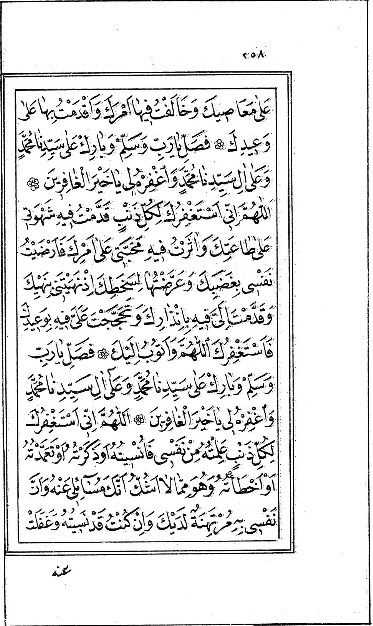 ٢٥٨
عَلٰى مَعَاصِيكَ وَخَالَفْتُ فِيهَا اَمْرَكَ وَاَقْدَمْتُ بِهَا عَلٰى
وَعِيدِكَ ۞ فَصَلِّ يَا رَبِّ وَسَلِّمْ وَبَارِكْ عَلٰى سَيِّدِنَا مُحَمَّدٍ
وَعَلٰى اٰلِ سَيِّدِنَا مُحَمَّدٍ وَاغْفِرْهُ لِى يَا خَيْرَ الْغَافِرِينَ ۞
اَللّٰهُمَّ اِنِّى اَسْتَغْفِرُكَ لِكُلِّ ذَنْبٍ قَدَّمْتُ فِيهِ شَهْوَتِى
عَلٰى طَاعَتِكَ وَاٰثَرْتُ فِيهِ مَحَبَّتِى عَلٰى اَمْرِكَ فَاَرْضَيْتُ
نَفْسِى بِغَضَبِكَ وَعَرَّضْتُهَا لِسَخَطِكَ اِذْ نَهَيْتَنِى بِنَهْيِكَ
وَقَدَّمْتَ اِلَىَّ فِيهِ بِاِنْذَارِكَ وَتَحَجَّجْتَ عَلَىَّ فِيهِ بِوَعِيدِكَ
فَاَسْتَغْفِرُكَ اللّٰهُمَّ وَاَتُوبُ اِلَيْكَ ۞ فَصَلِّ يَا رَبِّ
وَسَلِّمْ وَبَارِكْ عَلٰى سَيِّدِنَا مُحَمَّدٍ وَعَلٰى اٰلِ سَيِّدِنَا مُحَمَّدٍ
وَاغْفِرْهُ لِى يَا خَيْرَ الْغَافِرِينَ ۞ اَللّٰهُمَّ اِنِّى اَسْتَغْفِرُكَ
لِكُلِّ ذَنْبٍ عَلِمْتُهُ مِنْ نَفْسِى فَاُنْسِيتُهُ اَوْ ذَكَرْتُهُ اَوْ تَعَمَّدْتُهُ
اَوْ اَخْطَاْتُهُ وَهُوَ مِمَّا لَا اَشُكُّ اَنَّكَ مُسَائِلِى عَنْهُ وَاَنَّ
نَفْسِى بِهِ مُرْتَهِنَةٌ لَدَيْكَ وَاِنْ كُنْتُ قَدْ نَسِيتُهُ وَغَفَلَتْ
عنه